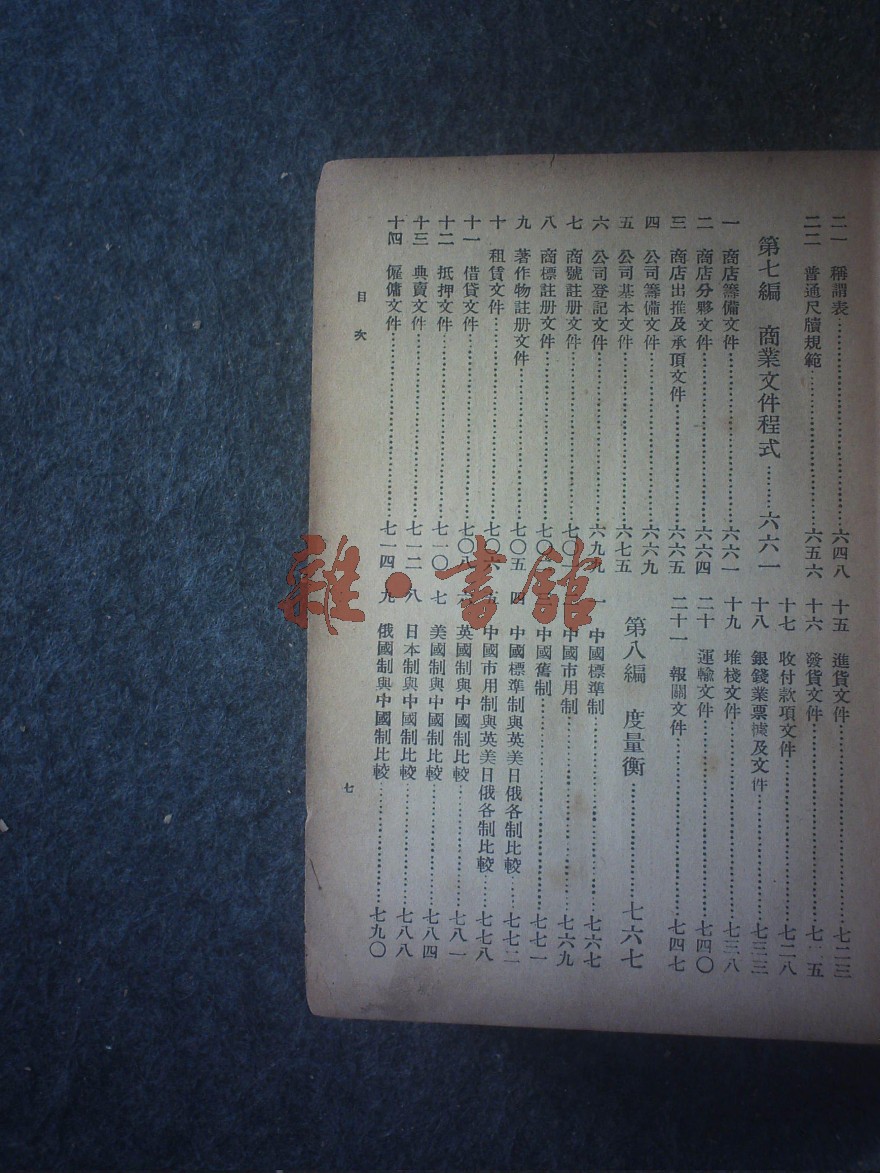 二一 稱謂表……六四八
二二 普通尺牘規範……六五六
第七編 商業文件程式……六六一
一 商店籌備文件……六六一
二 商店分夥文件……六六四
三 商店出推及承頂文件……六六五
四 公司籌備文件……六六九
五 公司基本文件……六七五
六 公司登記文件……六九九
七 商號註册文件……七〇
八 商標註册文件……七〇
九 著作物註册文件……七〇五
十 租賃文件……七〇六
十一 借貸文件……七〇八
十二 抵押文件……七一〇
十三 典賣文件……七一二
十四 僱傭文件……七一四
十五 進貨文件……七二三
十六 發貨文件……七二五
十七 收付款項文件……七二八
十八 銀錢業票據及文件……七三三
十九 堆棧文件……七三八
二十 運輸文件……七四〇
二十一 報關文件……七四七
第八編 度量衡……七六七
一 中國標準制……七六七
二 中國市用制……七六九
中國舊制……七七一
四 中國標準制與英美日俄各制比較……七七二
五 中國市用制與英美日俄各制比較……七七八
六 英國制與中國制比較……七八一
七 美國制與中國制比較……七八四
八 日本制與中國制比較……七八八
九 俄國制與中國制比較……七九〇
目次
七
雜·書館